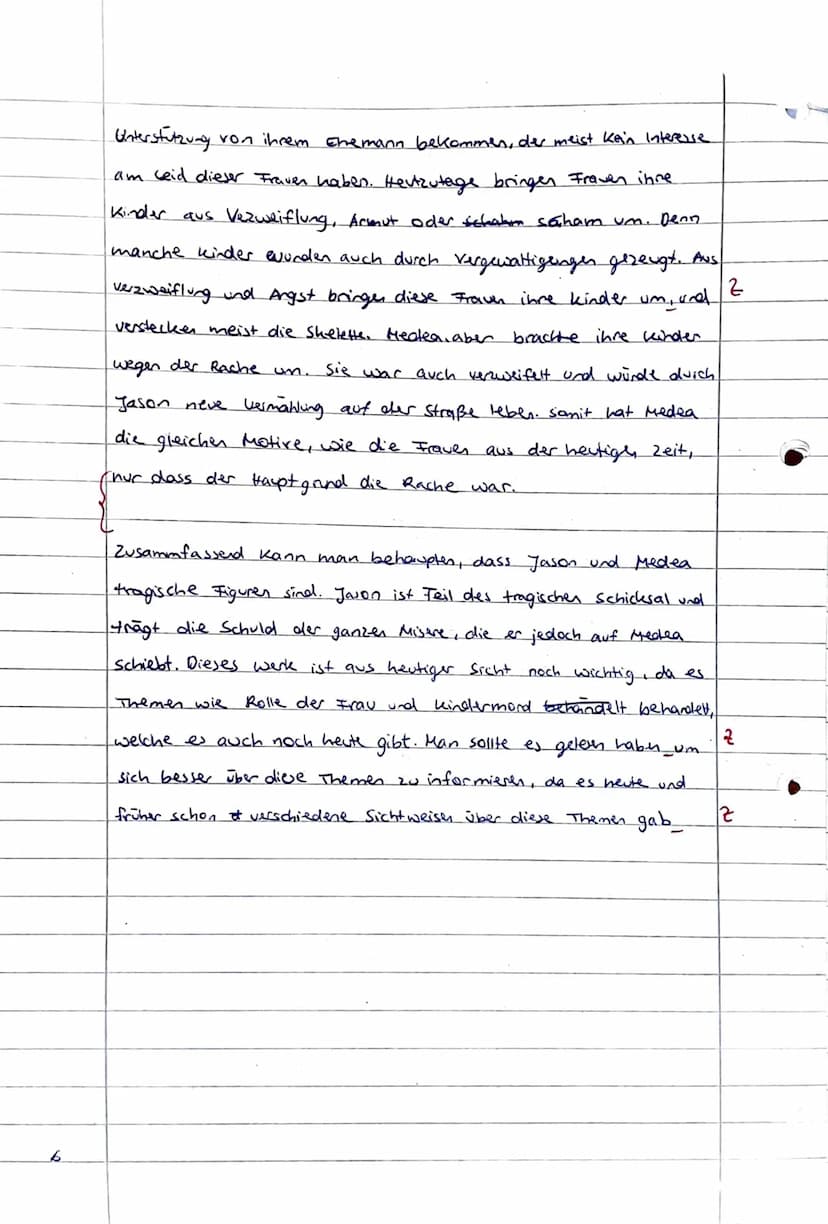 Unterstützung von ihrem Ehemann bekommen, der meist kein Interesse
am Leid dieser Frauen haben. Heutzutage bringen Frauen ihre
Kinder aus Vezweiflung, Armut oder schahm scham um. Denn
manche Kinder wurden auch durch Vergewaltigungen gezeugt. Aus
Verzweiflung und Angst bringen diese Frauen ihre Kinder um, und Z
verstecken meist die Skelette. Medea aber brachte ihre Kinder
wegen der Rache um. Sie war auch verzweifelt und würde durch
Jason neue Vermählung auf der Straße leben. somit hat Medea
die gleichen Motive, wie die Frauen aus der heutigen Zeit,
nur dass der Hauptgrund die Rache war.
Zusammfassend kann man behaupten, dass Jason und Medea
tragische Figuren sind. Jason ist Teil des tragischen Schicksal und
trägt die Schuld der ganzen Misere, die er jedoch auf Medea
schiebt. Dieses Werk ist aus heutiger Sicht noch wichtig, da es
Themen wie Rolle der Frau und Kindermord behandelt behandelt,
welche es auch noch heute gibt. Man sollte es gelesen haben um Z
sich besser über diese Themen zu informieren, da es heute und
früher schon verschiedene Sichtweisen über diese Themen gab Z
6